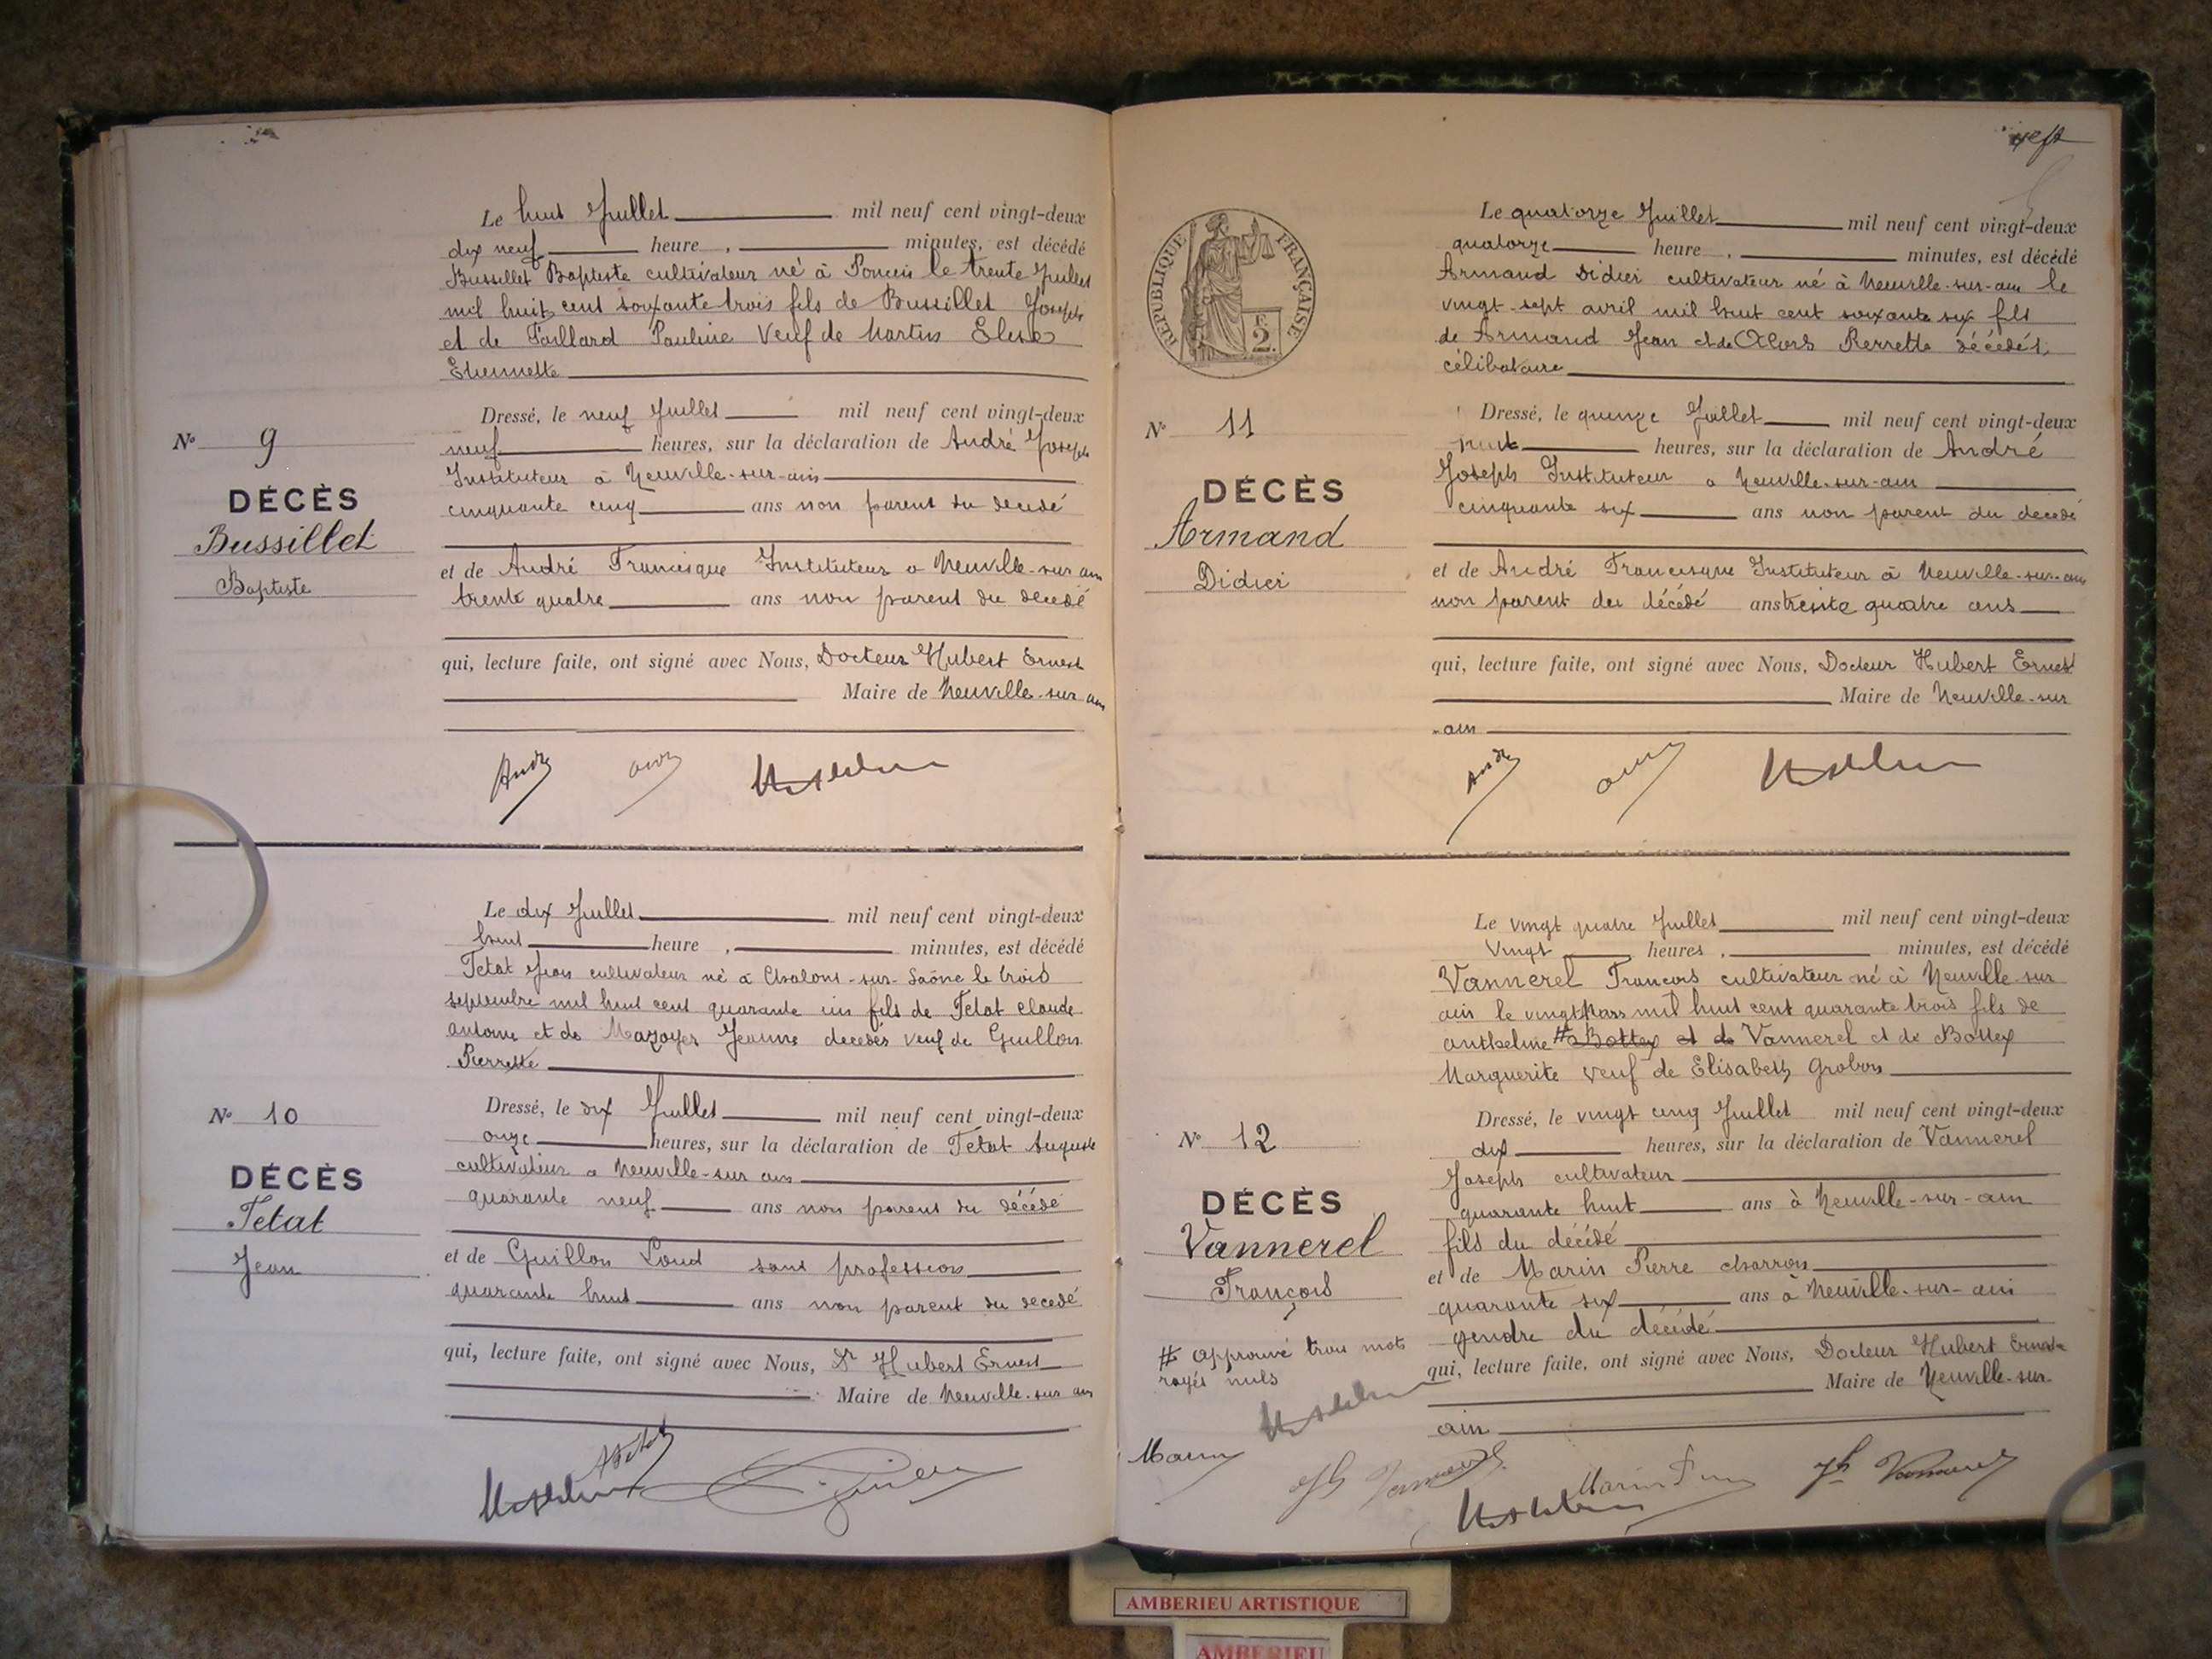 Le huit Juillet mil neuf cent vingt-deux
dix neuf heure , minutes, est décédé
Bussillet Baptiste cultivateur né à Poncin le trente Juillet
mil huit cent soixante trois fils de Bussillet Joseph
et de Taillard Pauline Veuf de Martin Elise
Etiennette
Dressé, le neuf Juillet mil neuf cent vingt-deux
neuf heures, sur la déclaration de André Joseph
Instituteur à Neuville-sur-ain
cinquante cinq ans non parent du decedé
et de André Francisque Instituteur a Neuville-sur ain
trente quatre ans non parent du decedé
qui, lecture faite, ont signé avec Nous, Docteur Hubert Ernest
Maire de Neuville-sur ain
N° 9
DÉCÈS
Bussillet
Baptiste
André
Le dix Juillet mil neuf cent vingt-deux
huit heure , minutes, est décédé
Tetat Jean cultivateur né à Chalons-sur-Saône le trois
septembre mil huit cent quarante un fils de Tetat Claude
antoine et de Mazoyer Jeanne decedés veuf de Guillon
Pierrette
Dressé, le dix Juillet mil neuf cent vingt-deux
onze heures, sur la déclaration de Tetat Auguste
cultivateur a Neuville-sur ain
quarante neuf ans non parent du décédé
et de Guillon sans profession
quarante huit ans non parent du decedé
qui, lecture faite, ont signé avec Nous, Dr Hubert Ernest
Maire de Neuville-sur ain
N° 10
DÉCÈS
Tetat
Jean
A Tetat
REPUBLIQUE FRANÇAISE
2
Le quatorze Juillet mil neuf cent vingt-deux
quatorze heure , minutes, est décédé
Armand Didier cultivateur né à Neuville-sur-ain le
vingt-sept avril mil huit cent soixante six fils
de Armand Jean et de Pierrette décédés
célibataire
Dressé, le quinze Juillet mil neuf cent vingt-deux
huit heures, sur la déclaration de André
Joseph Instituteur a Neuville-sur-ain
cinquante six ans non parent du decedé
et de André Francisque Instituteur à Neuville-sur-ain
non parent du décédé ans trente quatre ans
qui, lecture faite, ont signé avec Nous, Docteur Hubert Ernest
Maire de Neuville-sur
-ain
N° 11
DÉCÈS
Armand
Didier
André
Le vingt quatre Juillet mil neuf cent vingt-deux
Vingt heures , minutes, est décédé
Vannerel François cultivateur né à Neuville-sur
ain le vingt Mars mil huit cent quarante trois fils de
anthelme # Bottex et de Vannerel et de Bottex
Marguerite veuf de Elisabeth Grobon
Dressé, le vingt cinq Juillet mil neuf cent vingt-deux
dix heures, sur la déclaration de Vannerel
Joseph cultivateur
quarante huit ans à Neuville-sur-ain
fils du décédé
et de Marin Pierre charron
quarante six ans à Neuville-sur-ain
gendre du décédé
qui, lecture faite, ont signé avec Nous, Docteur Hubert Ernest
Maire de Neuville-sur-
ain
N° 12
DÉCÈS
Vannerel
François
# Approuvé trois mots
rayés nuls
Marin
Jh Vannerel
Marin
Jh Vannerel
AMBERIEU ARTISTIQUE
AMBERIEU